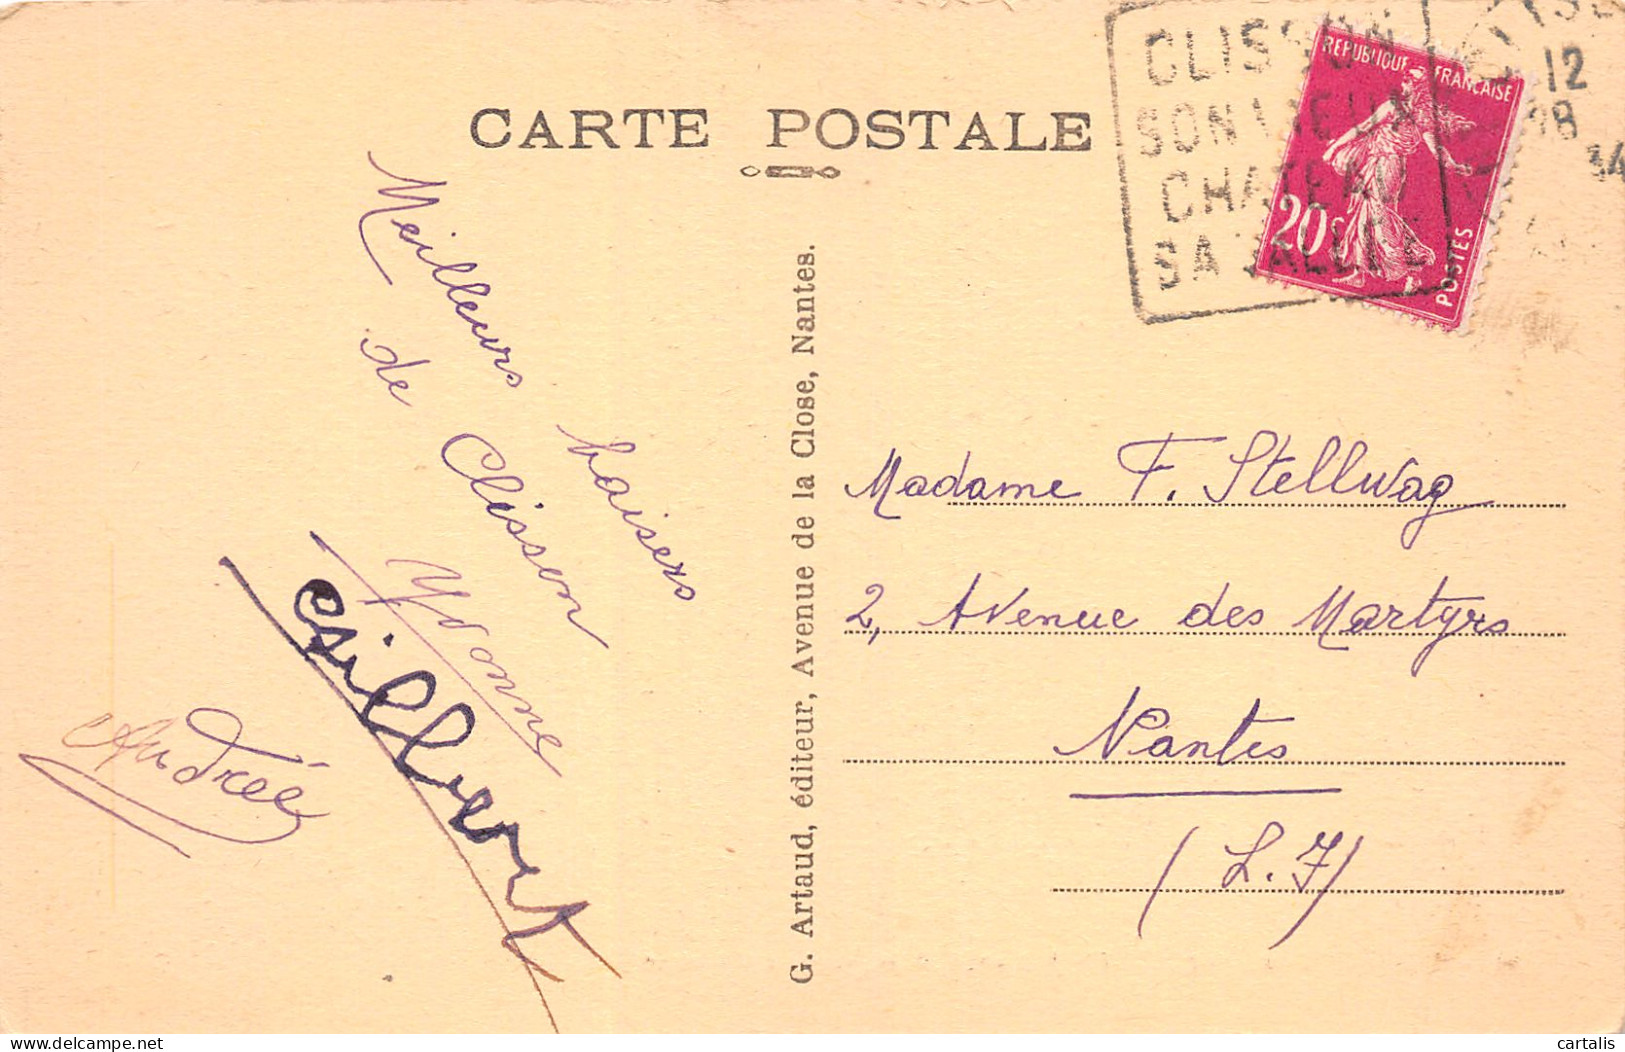 CARTE POSTALE
CLISSON
SON VIEUX
CHATEAU
SA VALLEE
12
34
REPUBLIQUE FRANCAISE
20c
POSTES
Meilleurs baisers
de Clisson
Yvonne
Gilbert
Andrée
G. Artaud, éditeur, Avenue de la Close, Nantes.
Madame F. Stellwag
2, Avenue des Martyrs
Nantes
(L. I)
delcampe.net
cartalis